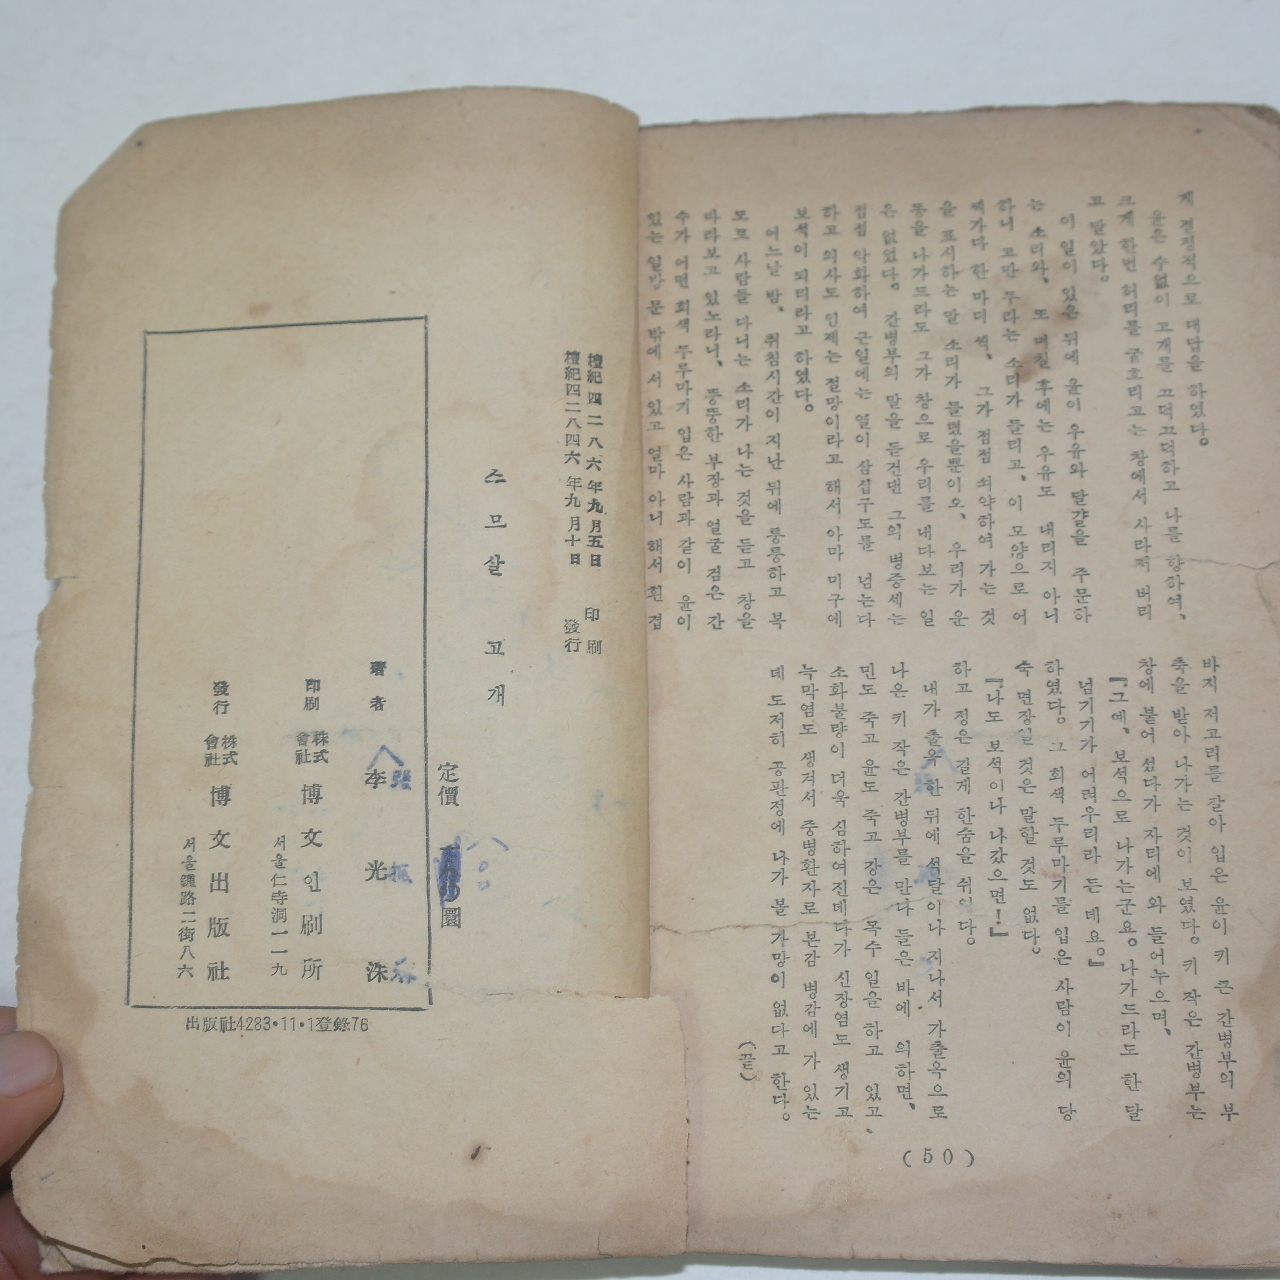 게 결정적으로 대답을 하였다。
윤은 수없이 고개를 끄덕끄덕하고 나를 향하여、
크게 한번 허리를 굽흐리고는 창에서 사라저 버리
고 말았다。
이 일이 있은 뒤에 윤이 우유와 달걀을 주문하
는 소리와、 또 며칠 후에는 우유도 내리지 아니
하니 고만 두라는 소리가 들리고、이 모양으로 어
쩌가다 한 마디 씩、 그가 점점 쇠약하여 가는 것
을 표시하는 말 소리가 들렸을뿐이오、 우리가 운
동을 나가드라도 그가 창으로 우리를 내다보는 일
은 없었다。 간병부의 말을 듣건댄 그의 병증세는
점점 악화하여 근일에는 열이 삼십구도를 넘는다
하고 의사도 인제는 절망이라고 해서 아마 미구에
보석이 되리라고 하였다。
어느날 밤、 취침시간이 지난 뒤에 퉁퉁하고 복
도로 사람들 다니는 소리가 나는 것을 듣고 창을
바라보고 있노라니、 뚱뚱한 부장과 얼굴 검은 간
수가 어떤 회색 두루마기 입은 사람과 같이 윤이
있는 일방 문 밖에 서 있고 얼마 아니 해서 흰 겹
바지 저고리를 갈아 입은 윤이 키 큰 간병부의 부
축을 받아 나가는 것이 보였다。키 작은 간병부는
창에 붙어 섰다가 자리에 와 들어누으며、
『그예、보석으로 나가는군요。나가드라도 한 달
넘기기가 어려우리라 든 데요。』
하였다。그 회색 두루마기를 입은 사람이 윤의 당
숙 면장일 것은 말할 것도 없다。
『나도 보석이나 나갔으면!』
하고 정은 길게 한숨을 쉬였다。
내가 출옥 한 뒤에 석달이나 지나서 가출옥으로
나온 키 작은 간병부를 만나 들은 바에 의하면、
민도 죽고 윤도 죽고 강은 목수 일을 하고 있고、
소화불량이 더욱 심하여진데다가 신장염도 생기고
늑막염도 생겨서 중병환자로 본감 병감에 가 있는
데 도저히 공판정에 나가 볼 가망이 없다고 한다。
(끝)
(50)
檀紀四二八六年九月五日 印刷
檀紀四二八四六年九月十日 發行
스므살 고개
定價 圜
著者 李光洙
印刷 株式會社 博文인刷所
서울仁寺洞一一九
發行 株式會社 博文出版社
서울鍾路二街八六
出版社4283·11·1登錄76